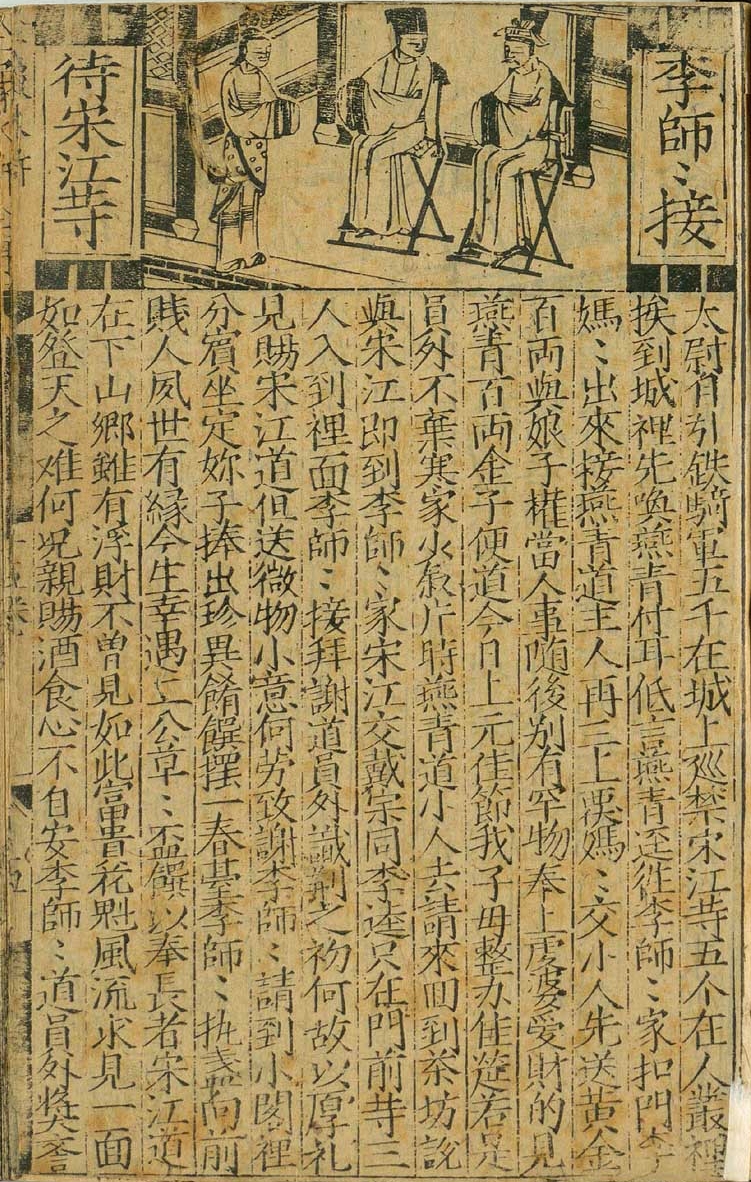 李師〻接
待宋江䓁
太尉自引鉄騎軍五千在城上廵禁宋江䓁五个在人叢裡
挨到城裡先喚燕青付耳低言燕青迳徃李師〻家扣門李
媽〻出來接燕青道主人再三上覆媽〻交小人先送黃金
百両與娘子權當人事随後别有罕物奉上虔婆愛財的見
燕青百両金子便道今日上元佳節我子母整办佳筵若是
員外不棄寒家少叙片時燕青道小人去請來回到茶坊說
與宋江即到李師〻家宋江交戴宗同李逵只在門前䓁三
人入到裡面李師〻接拜謝道員外識荆之初何故以厚礼
見賜宋江道但送微物小意何劳致謝李師〻請到小閣裡
分賔坐定妳子捧出珍異餚饌摆一春臺李師〻执盞向前
賤人夙世有緣今生幸遇二公草〻盃饌以奉長者宋江道
在下山鄉雖有浮財不曽見如此富貴花魁風流求見一面
如登天之难何况親賜酒食心不自安李師〻道員外奬誉